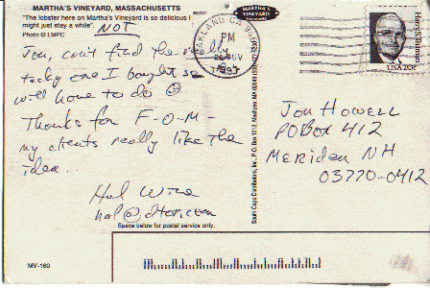 MARTHA'S VINEYARD, MASSACHUSETTS
"The lobster here on Martha's Vineyard is so delicious I
might just stay a while". NOT
Photo © LMPC
Jon, can't find the really
tacky one I bought so
will have to do ☺
Thanks for F-O-M-
my clients really like the
idea...
Hal Wine
hal@dtor.com
OAKLAND CA
PM
NOV
MARTHA'S
VINEYARD
Harry S. Truman
USA 20c
Jon Howell
PO Box 412
Meriden NH
03770-0412
Space below for postal service only.
MV-160